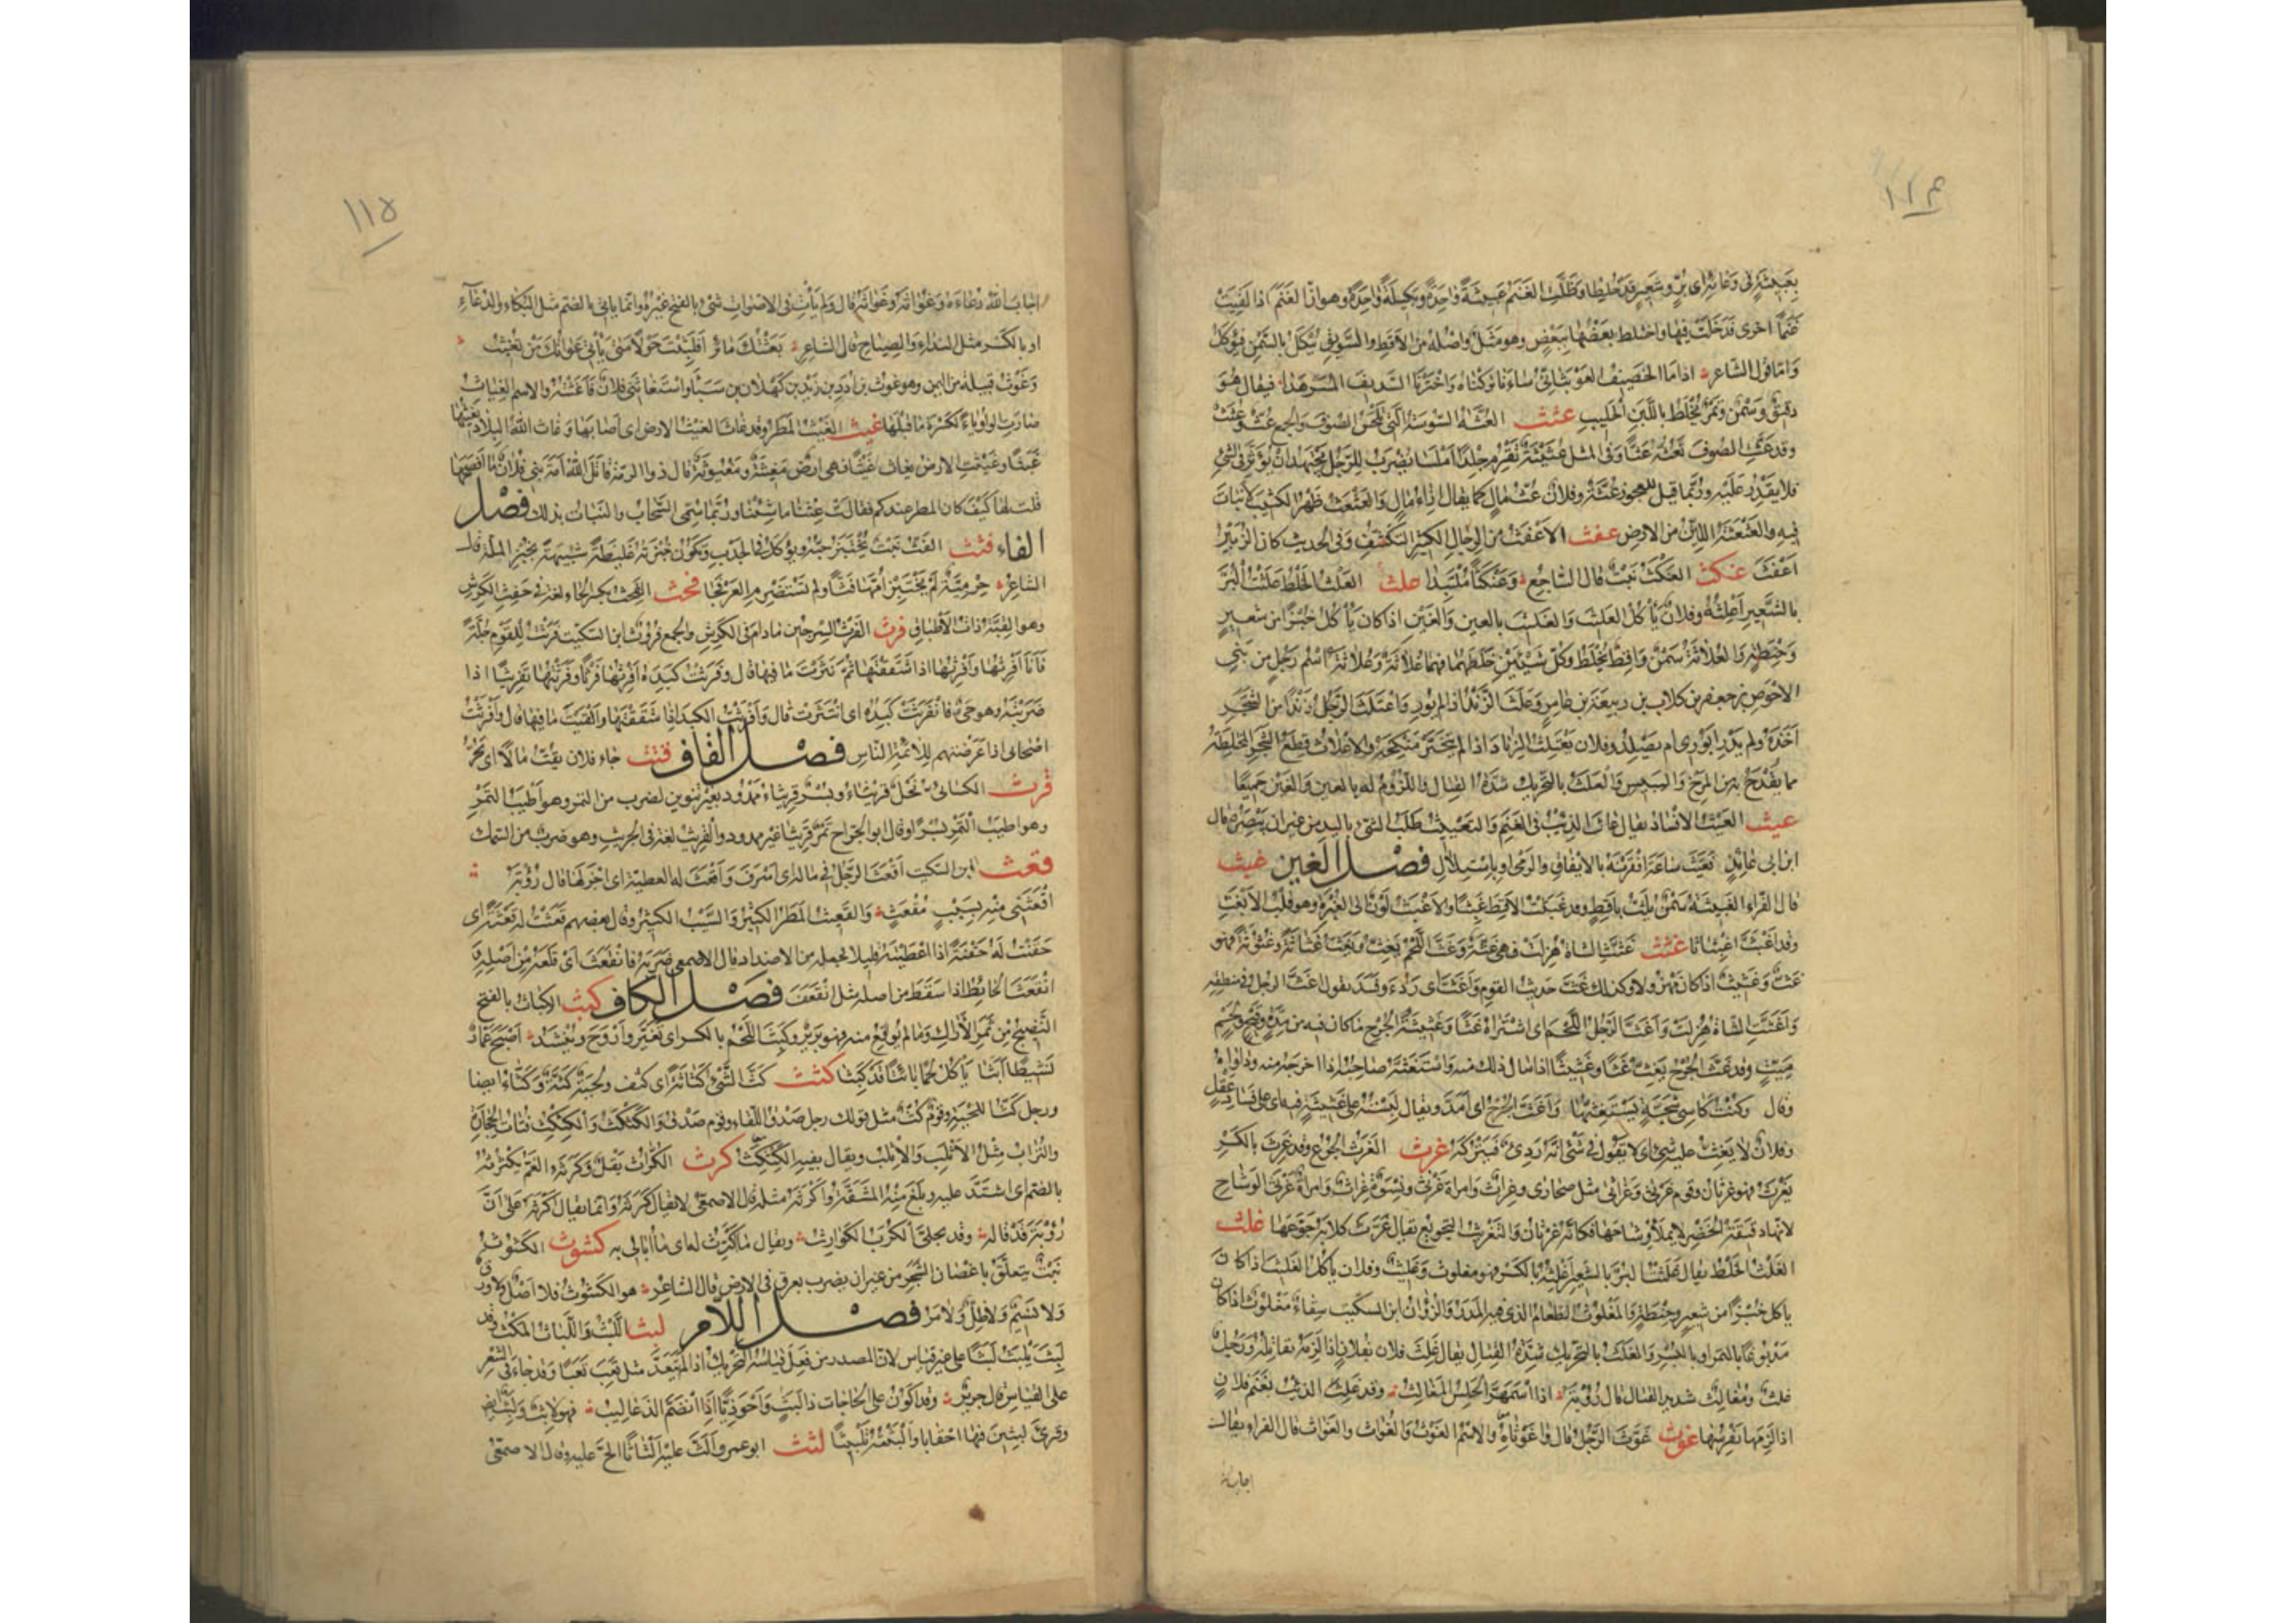 ١١٤
بعبيثة لى وعائه اى بر وشعير قد خلطا وظلت الغنم عبيثة واحدة وبكيلة واحدة وهو ان الغنم اذا لقيت
غنما اخرى فدخلت فيها واختلط بعضها ببعض وهو مثل واصله من الاقط والسويق يبكل بالسمن فيؤكل
واما قول الشاعر اذا ما الخصيف العوبثانى ساءنا تركناه واخترنا السديف المسرهدا فيقال هو
دقيق وسمن وتمر يخلط باللبن الحليب عثث العثة السوسة التى تلحس الصوف والجمع عث وعثث
وقد عثت الصوف تعثه عثا وفى المثل عثيثة تقرم جلدا املسا يضرب للرجل يجتهد ان يؤثر فى الشئ
فلا يقدر عليه وربما قيل للعجوز عثة وفلان عث مال كما يقال ازاء مال والعثعث ظهر الكثيب لا نبات
فيه والعثعثة اللين من الارض عفث الاعفث من الرجال الكثير التكشف وفى الحديث كان الزبير
اعفث عنكث العنكث نبت قال الساجع وعنكثا ملتبدا علث العلث الخلط علثت البر
بالشعير اعلثه وفلان يأكل العليث والغليث بالعين والغين اذا كان يأكل خبزا من شعير
وحنطة والعلاثة سمن واقط يخلط وكل شيئين خلطهما فهما علاثة وعلاثة اسم رجل من بنى
الاحوص بن جعفر بن كلاب بن ربيعة بن عامر وعلث الزند اذا لم يور واعتلث الرجل زندا من شجر
اخذه ولم يدر ايورى ام يصلد وفلان يعتلث الزناد اذا لم يتخير منكحه والاعلاث قطع الشجر المختلطة
مما يقدح به من المرخ واليبيس والعلث بالتحريك شدة القتال واللزوم له بالعين والغين جميعا
عيث العيث الافساد يقال عاث الذئب فى الغنم والتعييث طلب الشئ باليد من غير ان يبصره قال
ابن ابى عائذ فعيث ساعة اقفرنه بالايفاق والرمى او باستلال فصل الغين غبث
قال الفراء الغبيثة سمن يلت باقط وقد غبثت الاقط غبثا والاغبث لون الى الغبرة وهو قلب الابغث
وقد اغبث اغبثاثا غثث غثت الشاة هزلت فهى غثة وغث اللحم يغث ويغث غثاثة وغثوثة فهو
غث وغثيث اذا كان مهزولا وكذلك غث حديث القوم واغث اى ردء وفسد يقول اغث الرجل فى منطقه
واغثت الشاة هزلت واغث الرجل اللحم اى اشتراه غثا وغثيثة الجرح ما كان فيه من مدة وقيح ولحم
ميت وقد غث الجرح يغث غثا وغثيثا اذا سال ذلك منه واستغثه صاحبه اذا اخرجه منه وداواه
وقال وكنت كآسى شجة يستغثها واغث الجرح اى امد ويقال لبسته على غثيثة فيه اى على فساد عقل
وفلان لا يغث عليه شئ اى لا يقول فى شئ انه ردئ فيتركه غرث الغرث الجوع وقد غرث بالكسر
يغرث فهو غرثان وقوم غرثى وغراثى مثل صحارى وغراث وامراة غرثى ونسوة غراث وامراة غرثى الوشاح
لانها دقيقة الخصر لا يملأ وشاحها فكانه غرثان والتغريث التجويع يقال غرث كلابه جوعها غلث
الغلث الخلط يقال غلثت البر بالشعير اغلثه بالكسر فهو مغلوث وغليث وفلان يأكل الغليث اذا كان
يأكل خبزا من شعير وحنطة والمغلوث الطعام الذى فيه المدر والزؤان ابن السكيت سقاء مغلوث اذا كان
مدبوغا بالتمر او بالبسر والغلث بالتحريك شدة القتال يقال غلث فلان بفلان اذا لزمه يقاتله ورجل
غلث ومغالث شديد القتال قال رؤبة اذا اسمهر الحلس المغالث وقد غلث الذئب بغنم فلان
اذا لزمها يفرسها غوث غوث الرجل قال واغوثاه والاسم الغوث والغواث والغواث قال الفراء يقال
اجاب الله
١١٥
اجاب الله دعاءه وغواثه وغواثه قال ولم يأت فى الاصوات شئ بالفتح غيره وانما ياتى بالضم مثل البكاء والدعاء
او بالكسر مثل النداء والصياح قال الشاعر بعثتك مائرا فلبثت حولا متى يأتى غواثك من تغيث
وغوث قبيلة من اليمن وهو غوث بن ادد بن زيد بن كهلان بن سبأ واستغاثنى فلان فاغثته والاسم الغياث
صارت الواو ياء لكسرة ما قبلها غيث الغيث المطر وقد غاث الغيث الارض اى اصابها وغاث الله البلاد يغيثها
غيثا وغيثت الارض تغاث غيثا فهى ارض مغيثة ومغيوثة قال ذو الرمة قاتل الله امة بنى فلان ما افصحها
قلت لها كيف كان المطر عندكم فقالت غثنا ما شئنا وربما سمى السحاب والنبات بذلك فصل
الفاء فثث الفث نبت يختبز حبه ويؤكل فى الجدب وتكون خبزته غليظة شبيهة بخبز الملة قال
الشاعر حرمية لم يختبز امها فثا ولم تستضرم العرفجا فحث الفحث بكسر الحاء لغة فى حفث الكرش
وهو القبة ذات الاطباق فرث الفرث السرجين مادام فى الكرش والجمع فروث ابن السكيت فرثت للقوم جلة
فانا افرثها وافرثها اذا شققتها ثم نثرت ما فيها قال وفرثت كبده افرثها فرثا وفرثتها تفريثا اذا
ضربته وهو حى فانفرثت كبده اى انتثرت قال وافرثت الكبد اذا شققتها والقيت ما فيها قال وافرثت
اصحابى اذا عرضتهم للائمة الناس فصل القاف قثث جاء فلان يقث مالا اى يجره
قرث الكسائى نخل قريثاء وبسر قريثاء ممدود بغير تنوين لضرب من التمر وهو اطيب التمر
وهو اطيب التمر بسرا وقال ابو الجراح تمر قريثا غير ممدود والقريث لغة فى الجريث وهو ضرب من السمك
قعث ابن السكيت اقعث الرجل فى ماله اى اسرف واقعث له العطية اى اجزلها قال رؤبة
اقعثنى منه بسيب مقعث والقعيث المطر الكثير والسيب الكثير وقال بعضهم قعثت له قعثة اى
حفنت له حفنة اذا اعطيته قليلا نجعله من الاضداد قال الاصمعى ضربه فانقعث اى قلعه من اصله و
انقعث الحائط اذا سقط من اصله مثل انقعف فصل الكاف كبث الكباث بالفتح
النضيج من ثمر الاراك وما لم يونع منه فهو برير وكبث اللحم بالكسر اى تغير واروح وينشد اصبح عمار
نشيطا ابثا ياكل لحما بائتا قد كبثا كثث كث الشئ كثاثة اى كثف ولحية كثة وكثاء ايضا
ورجل كث اللحية وقوم كث مثل قولك رجل صدق اللقاء وقوم صدق والكثكث والكثكث فتات الحجارة
والتراب مثل الاثلب والاثلب ويقال بفيه الكثكث كرث الكراث بقل وكرثه الغم يكرثه
بالضم اى اشتد عليه وبلغ منه المشقة واكرثه مثله قال الاصمعى لا يقال كرثه وانما يقال اكرثه على ان
رؤبة قد قاله وقد تجلى الكرب الكوارث ويقال ما اكترث له اى ما ابالى به كشوث الكشوث
نبت يتعلق باغصان الشجر من غير ان يضرب بعرق فى الارض قال الشاعر هو الكشوث فلا اصل ولا ورق
ولا نسيم ولا ظل ولا ثمر فصل اللام لبث اللبث واللباث المكث وقد
لبث يلبث لبثا على غير قياس لان المصدر من فعل قياسه التحريك اذا لم يتعد مثل تعب تعبا وقد جاء فى الشعر
على القياس قال جرير وقد اكون على الحاجات ذا لبث واحوذيا اذا انضم الذعاليب فهو لابث ولبث ايضا
وقرئ لبثين فيها احقابا والبثته تلبيثا لثث ابو عمرو الث عليه الثاثا الح عليه وقال الاصمعى